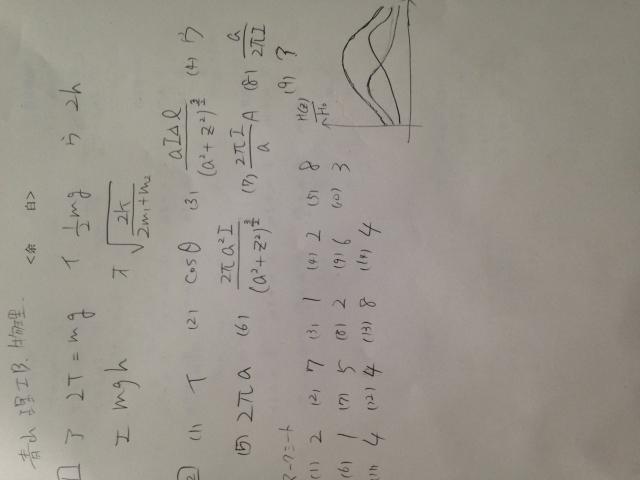 青山 理工B. 物理.
<余 白>
1 ア 2T = mg イ 1/2 mg ウ 2h
エ mgh オ √(2k/(2m₁+m₂))
2 (1) イ (2) cosθ (3) aIΔl/(a²+z²)^(3/2) (4) ウ
(5) 2πa (6) 2πa²I/(a²+z²)^(3/2) (7) 2πI/a A (8) a/2πI (9) 3
マークシート
(1) 2 (2) 7 (3) 1 (4) 2 (5) 8
(6) 1 (7) 5 (8) 2 (9) 6 (10) 3
(11) 4 (12) 4 (13) 8 (14) 4
H(z)/H₀